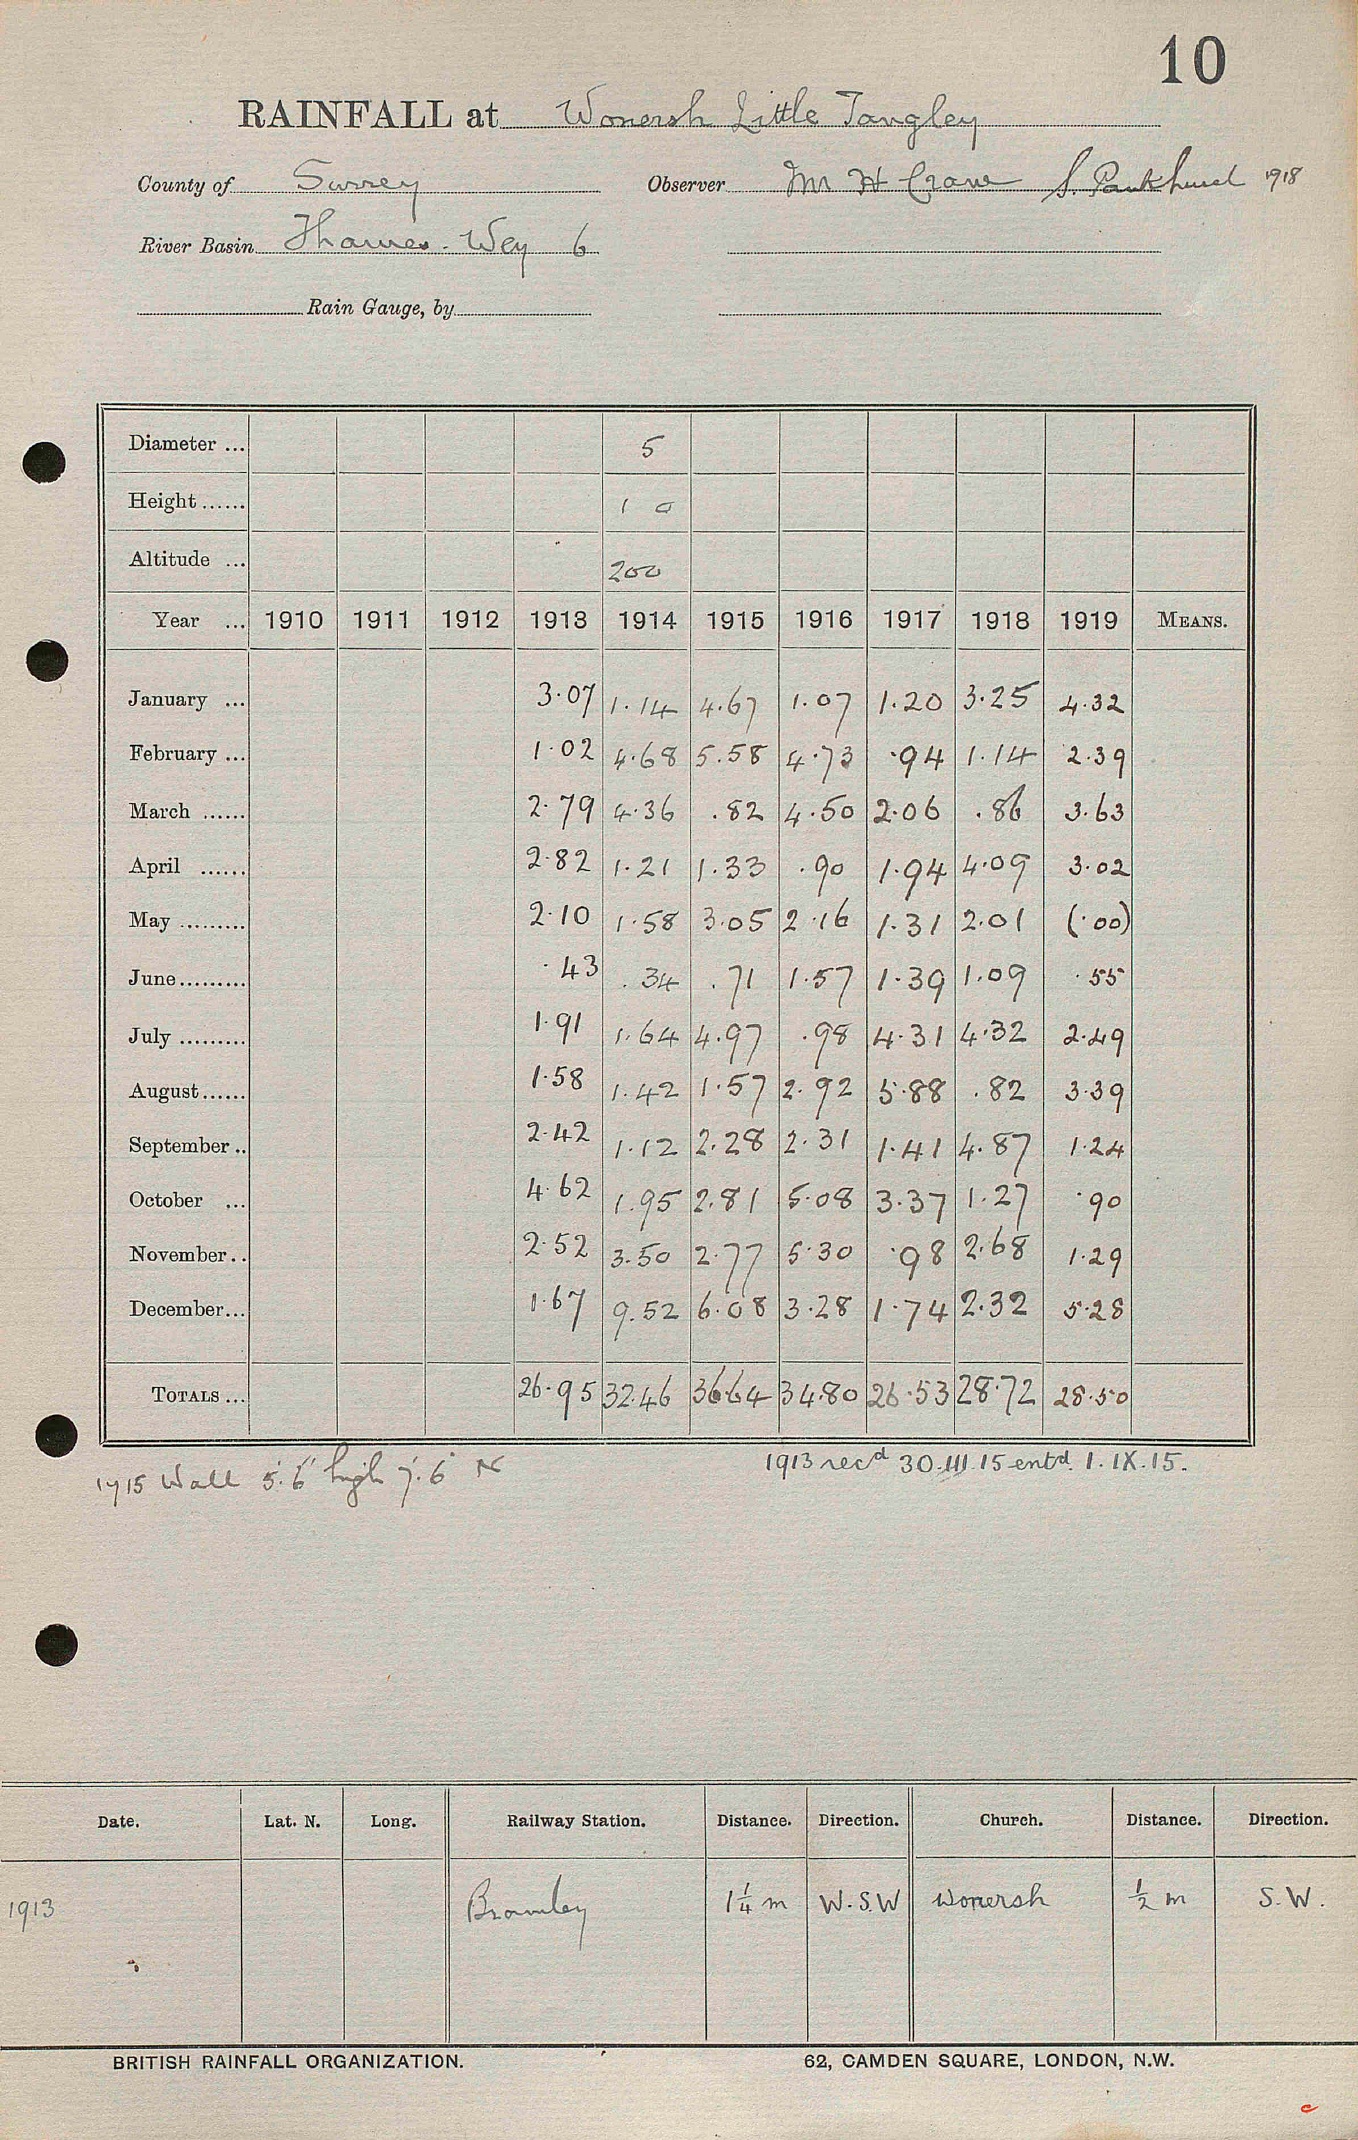 10
RAINFALL at Wonersh Little Tangley
County of Surrey Observer Mr H Crane S. Pankhurst 1918
River Basin Thames. Wey 6
Rain Gauge, by
Diameter ... 5
Height ...... 1 0
Altitude ... 200
Year ... 1910 1911 1912 1913 1914 1915 1916 1917 1918 1919 MEANS.
January ... 3.07 1.14 4.67 1.07 1.20 3.25 4.32
February ... 1.02 4.68 5.58 4.73 .94 1.14 2.39
March ...... 2.79 4.36 .82 4.50 2.06 .86 3.63
April ...... 2.82 1.21 1.33 .90 1.94 4.09 3.02
May ......... 2.10 1.58 3.05 2.16 1.31 2.01 (.00)
June......... .43 .34 .71 1.57 1.39 1.09 .55
July ......... 1.91 1.64 4.97 .98 4.31 4.32 2.49
August...... 1.58 1.42 1.57 2.92 5.88 .82 3.39
September.. 2.42 1.12 2.28 2.31 1.41 4.87 1.24
October ... 4.62 1.95 2.81 5.08 3.37 1.27 .90
November.. 2.52 3.50 2.77 5.30 .98 2.68 1.29
December... 1.67 9.52 6.08 3.28 1.74 2.32 5.28
TOTALS ... 26.95 32.46 36.64 34.80 26.53 28.72 28.50
1915 Wall 5'.6" high 7'.6" N
1913 recd 30.III.15 entd. 1.IX.15.
Date. Lat. N. Long. Railway Station. Distance. Direction. Church. Distance. Direction.
1913 Bramley 1¼ m W.S.W Wonersh ½ m S.W.
BRITISH RAINFALL ORGANIZATION. 62, CAMDEN SQUARE, LONDON, N.W.
c